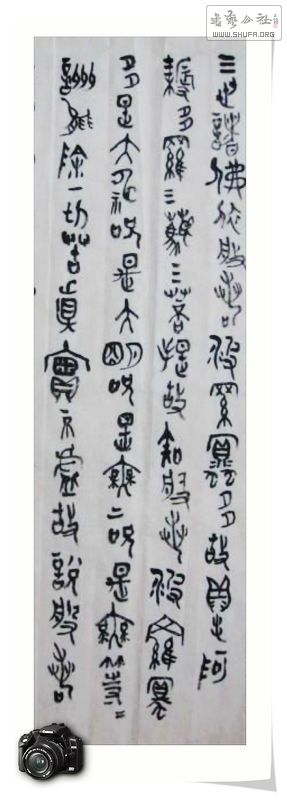 書藝公社
WWW.SHUFA.ORG
三世諸佛依般若波羅蜜多故得阿
耨多羅三藐三菩提故知般若波羅蜜
多是大神咒是大明咒是無上咒是無等〻
咒能除一切苦真實不虛故說般若